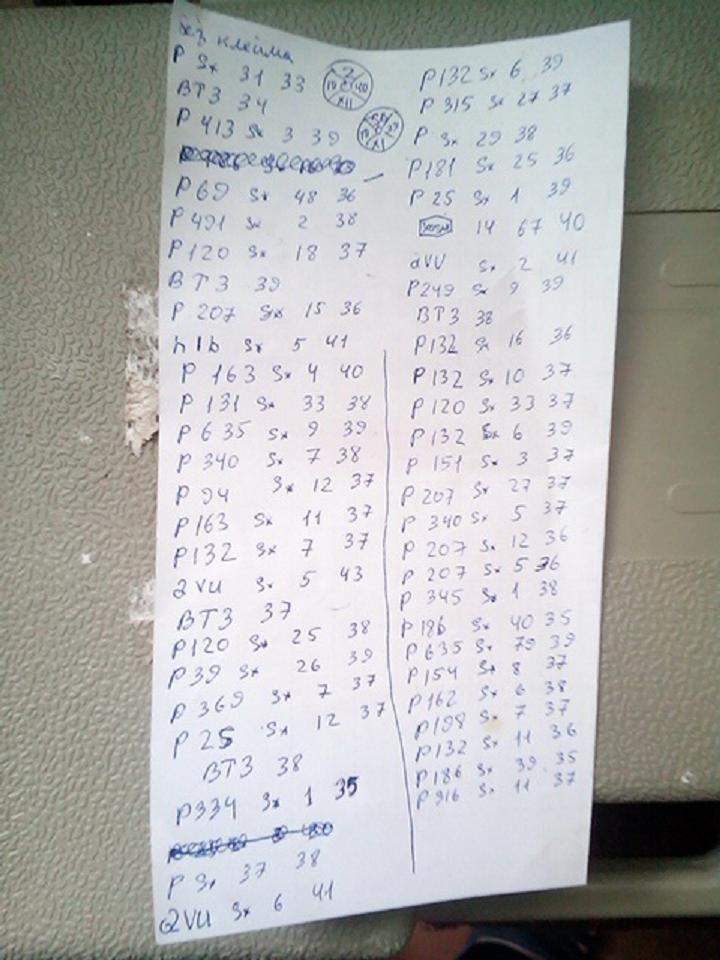 Без клейма
P Sx 31 33
ВТЗ 34
P 413 Sx 3 39
P 69 Sx 48 36
P 491 Sx 2 38
P 120 Sx 18 37
ВТЗ 39
P 207 Sx 15 36
h1b Sx 5 41
P 163 Sx 4 40
P 131 Sx 33 38
P 635 Sx 9 39
P 340 Sx 7 38
P 94 Sx 12 37
P 163 Sx 11 37
P 132 Sx 7 37
avu Sx 5 43
ВТЗ 37
P 120 Sx 25 38
P 39 Sx 26 39
P 369 Sx 7 37
P 25 Sx 12 37
ВТЗ 38
P 334 Sx 1 35
P Sx 37 38
avu Sx 6 41
P 132 Sx 6 39
P 315 Sx 27 37
P Sx 29 38
P 181 Sx 25 36
P 25 Sx 1 39
14 67 40
avu Sx 2 41
P 249 Sx 9 39
ВТЗ 38
P 132 Sx 16 36
P 132 Sx 10 37
P 120 Sx 33 37
P 132 Sx 6 39
P 151 Sx 3 37
P 207 Sx 27 37
P 340 Sx 5 37
P 207 Sx 12 36
P 207 Sx 5 36
P 345 Sx 1 38
P 186 Sx 40 35
P 635 Sx 79 39
P 154 Sx 8 37
P 162 Sx 6 38
P 198 Sx 7 37
P 132 Sx 11 36
P 186 Sx 39 35
P 916 Sx 11 37